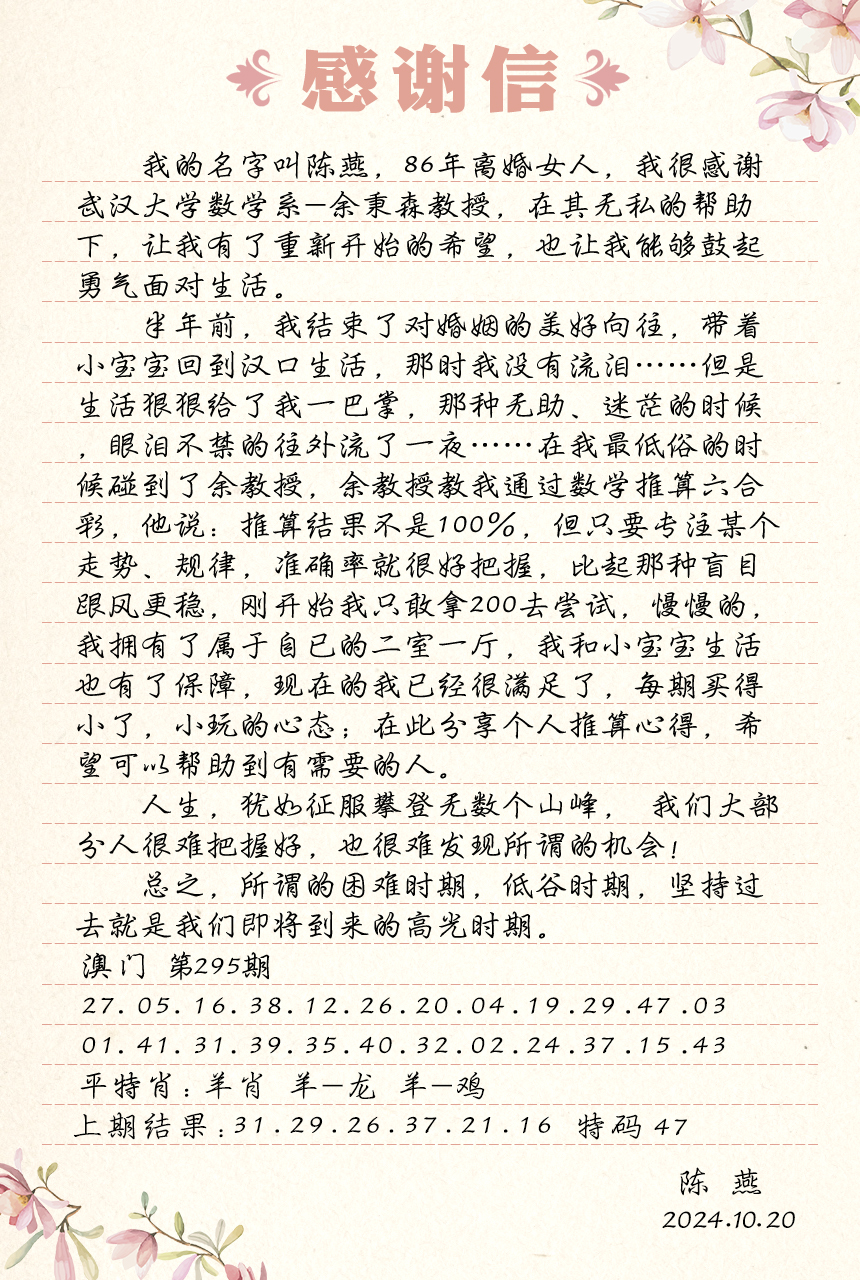 感谢信
我的名字叫陈燕，86年离婚女人，我很感谢
武汉大学数学系—余秉森教授，在其无私的帮助
下，让我有了重新开始的希望，也让我能够鼓起
勇气面对生活。
半年前，我结束了对婚姻的美好向往，带着
小宝宝回到汉口生活，那时我没有流泪……但是
生活狠狠给了我一巴掌，那种无助、迷茫的时候
，眼泪不禁的往外流了一夜……在我最低俗的时
候碰到了余教授，余教授教我通过数学推算六合
彩，他说：推算结果不是100%，但只要专注某个
走势、规律，准确率就很好把握，比起那种盲目
跟风更稳，刚开始我只敢拿200去尝试，慢慢的，
我拥有了属于自已的二室一厅，我和小宝宝生活
也有了保障，现在的我已经很满足了，每期买得
小了，小玩的心态；在此分享个人推算心得，希
望可以帮助到有需要的人。
人生，犹如征服攀登无数个山峰， 我们大部
分人很难把握好，也很难发现所谓的机会！
总之，所谓的困难时期，低谷时期，坚持过
去就是我们即将到来的高光时期。
澳门 第295期
27.05.16.38.12.26.20.04.19.29.47.03
01.41.31.39.35.40.32.02.24.37.15.43
平特肖：羊肖 羊—龙 羊—鸡
上期结果：31.29.26.37.21.16 特码 47
陈 燕
2024.10.20